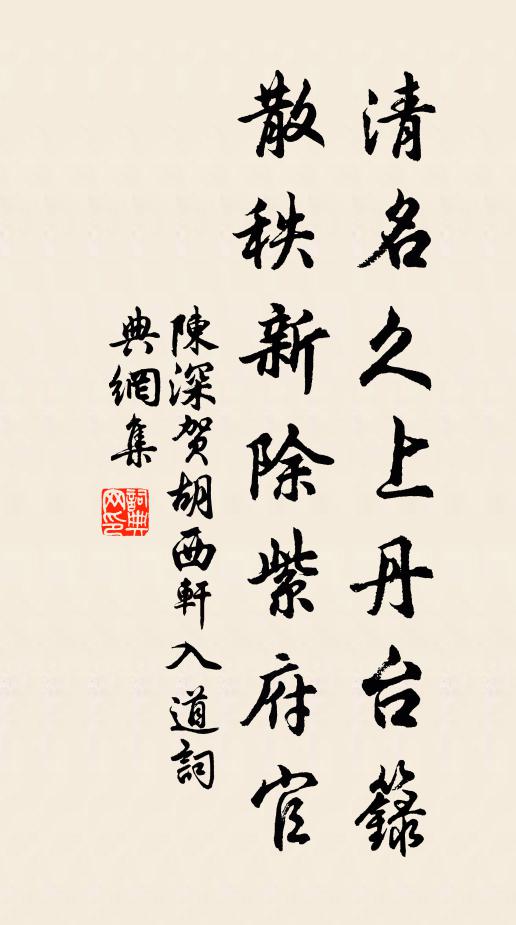 清名久上丹台籙
散秩新除紫府官
陳深賀胡西軒入道詞
典網集
詞典網印